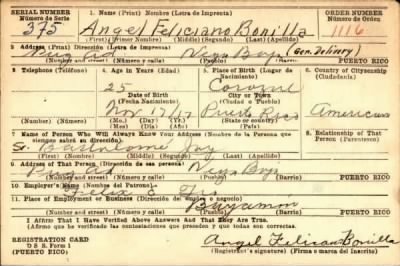 SERIAL NUMBER 1. Name (Print) Nombre (Letra de Imprenta) ORDER NUMBER
Número de Serie Número de Orden
375 Angel Feliciano Bonilla 1116
(First) (Primer Nombre) (Middle) (Segundo) (Last) (Apellido)
2 Address (Print) Dirección (Letra de Imprenta) (Gen. Delivery)
(Number and street) (Número y calle) (Pueblo) (Barrio) PUERTO RICO
3 Telephone (Teléfono) 4 Age in Years (Edad) 5 Place (Lugar de Nacimiento) 6 Country of Citizenship (Ciudadanía)
25
Date (Fecha Nacimiento) City or Town (Ciudad o Pueblo)
Nov. Puerto Rico American
(Mo.) (Day) (Yr.)
(Mes) (Día) (Año)
7 Name of Person Who Will Always Know Your Address (Nombre de la Persona que siempre sabrá su dirección) 8. Relationship of That Person (Parentesco)
Sr. Bartolomé
(First) (Primer nombre) (Middle) (Segundo) (Last) (Apellido)
9 Address of That Person (Dirección de esa persona)
(Number and street) (Número y calle) (Pueblo) (Barrio) PUERTO RICO
10 Employer's Name (Nombre del Patrono)
11 Place of Employment or Business (Dirección del empleo o negocio)
Bayamon
(Number and street) (Número y calle) (Pueblo) (Barrio) PUERTO RICO
I Affirm That I Have Verified Above Answers And That They Are True.
(Afirmo que he verificado las contestaciones que preceden y que son ciertas.)
REGISTRATION CARD
D S S. Form 1
(PUERTO RICO)
Angel Feliciano Bonilla
(Registrant's signature) (Firma o marca del Inscrito)